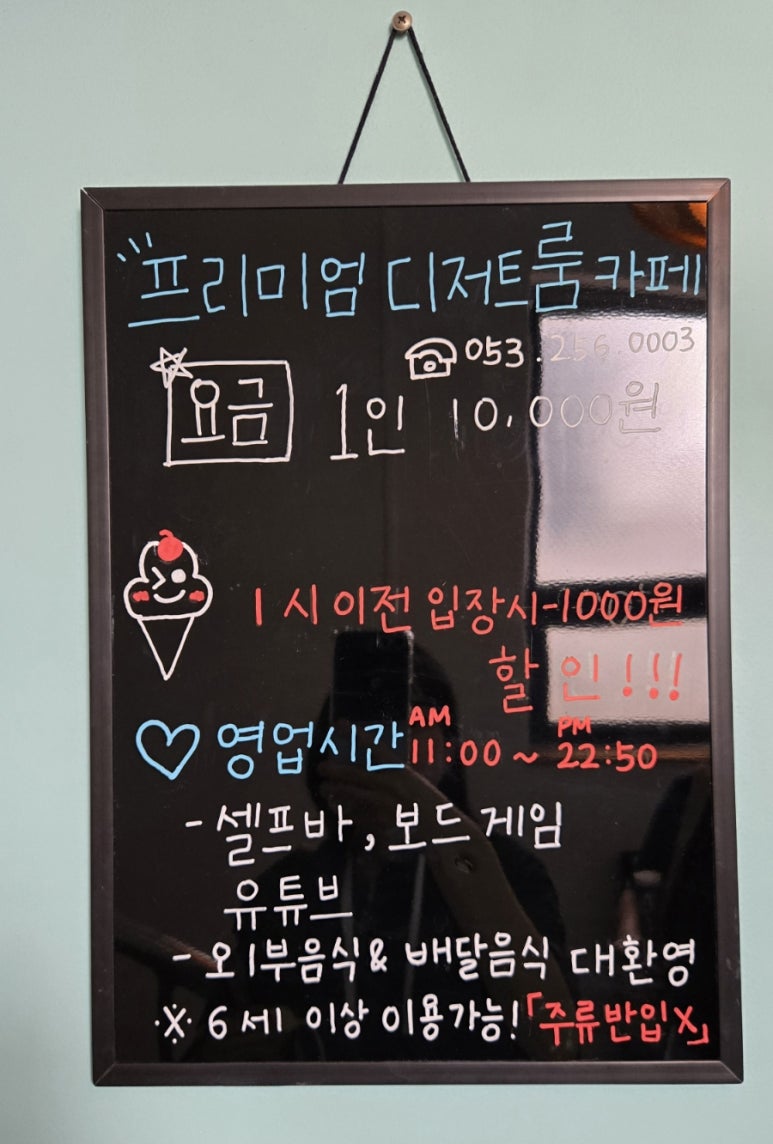 프리미엄 디저트룸 카페
053.256.0003
요금 1인 10,000원
1시 이전 입장시-1000원
할인!!!
영업시간 AM 11:00 ~ PM 22:50
- 셀프바, 보드게임
유튜브
- 외부음식 & 배달음식 대환영
※ 6세 이상 이용가능! 「주류반입X」